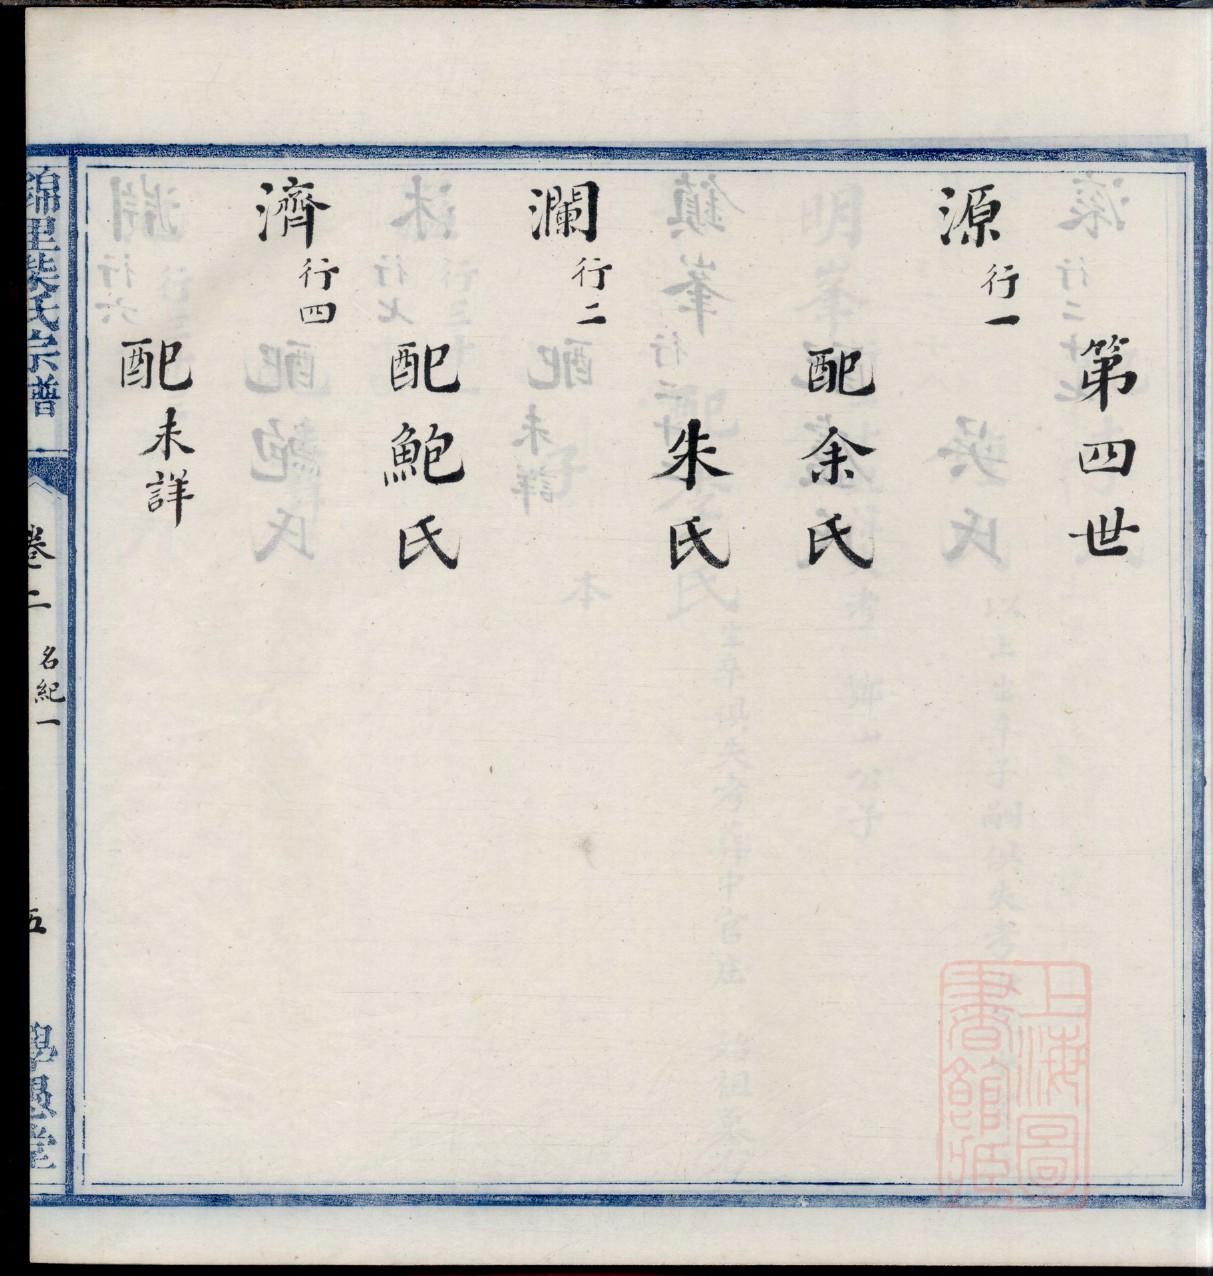 第四世
源行一
配余氏
朱氏
瀾行二
配鮑氏
濟行四
配未詳
錦里柴氏宗譜
卷二 名紀一
五
上海圖書館藏